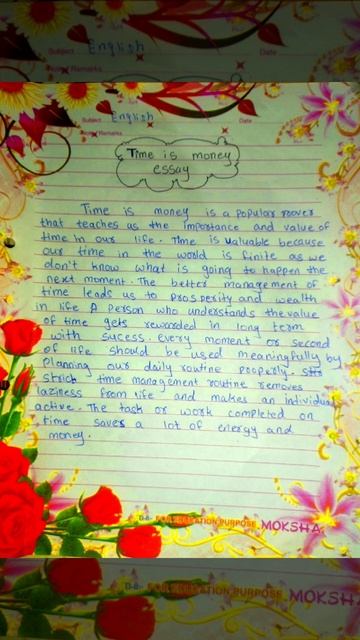 Subject English Date
Remarks
Subject English Date
Remarks
Time is money
essay
Time is money is a popular
that teaches as the importance and value of
time in our life. Time is valuable because
our time in the world is finite as we
don't know what is going to happen the
next moment. The better management of
time leads us to prosperity and wealth
in life A person who understands the value
of time gets rewarded in long term
with sucess. Every moment or second
of life should be used meaningfully by
Planning our daily routine properly.
Strict time management routine removes
laziness from life and makes an individual
active. The task or work completed on
time saves a lot of energy and
money.
FOR PURPOSE MOKSHA
FOR PURPOSE MOKSHA